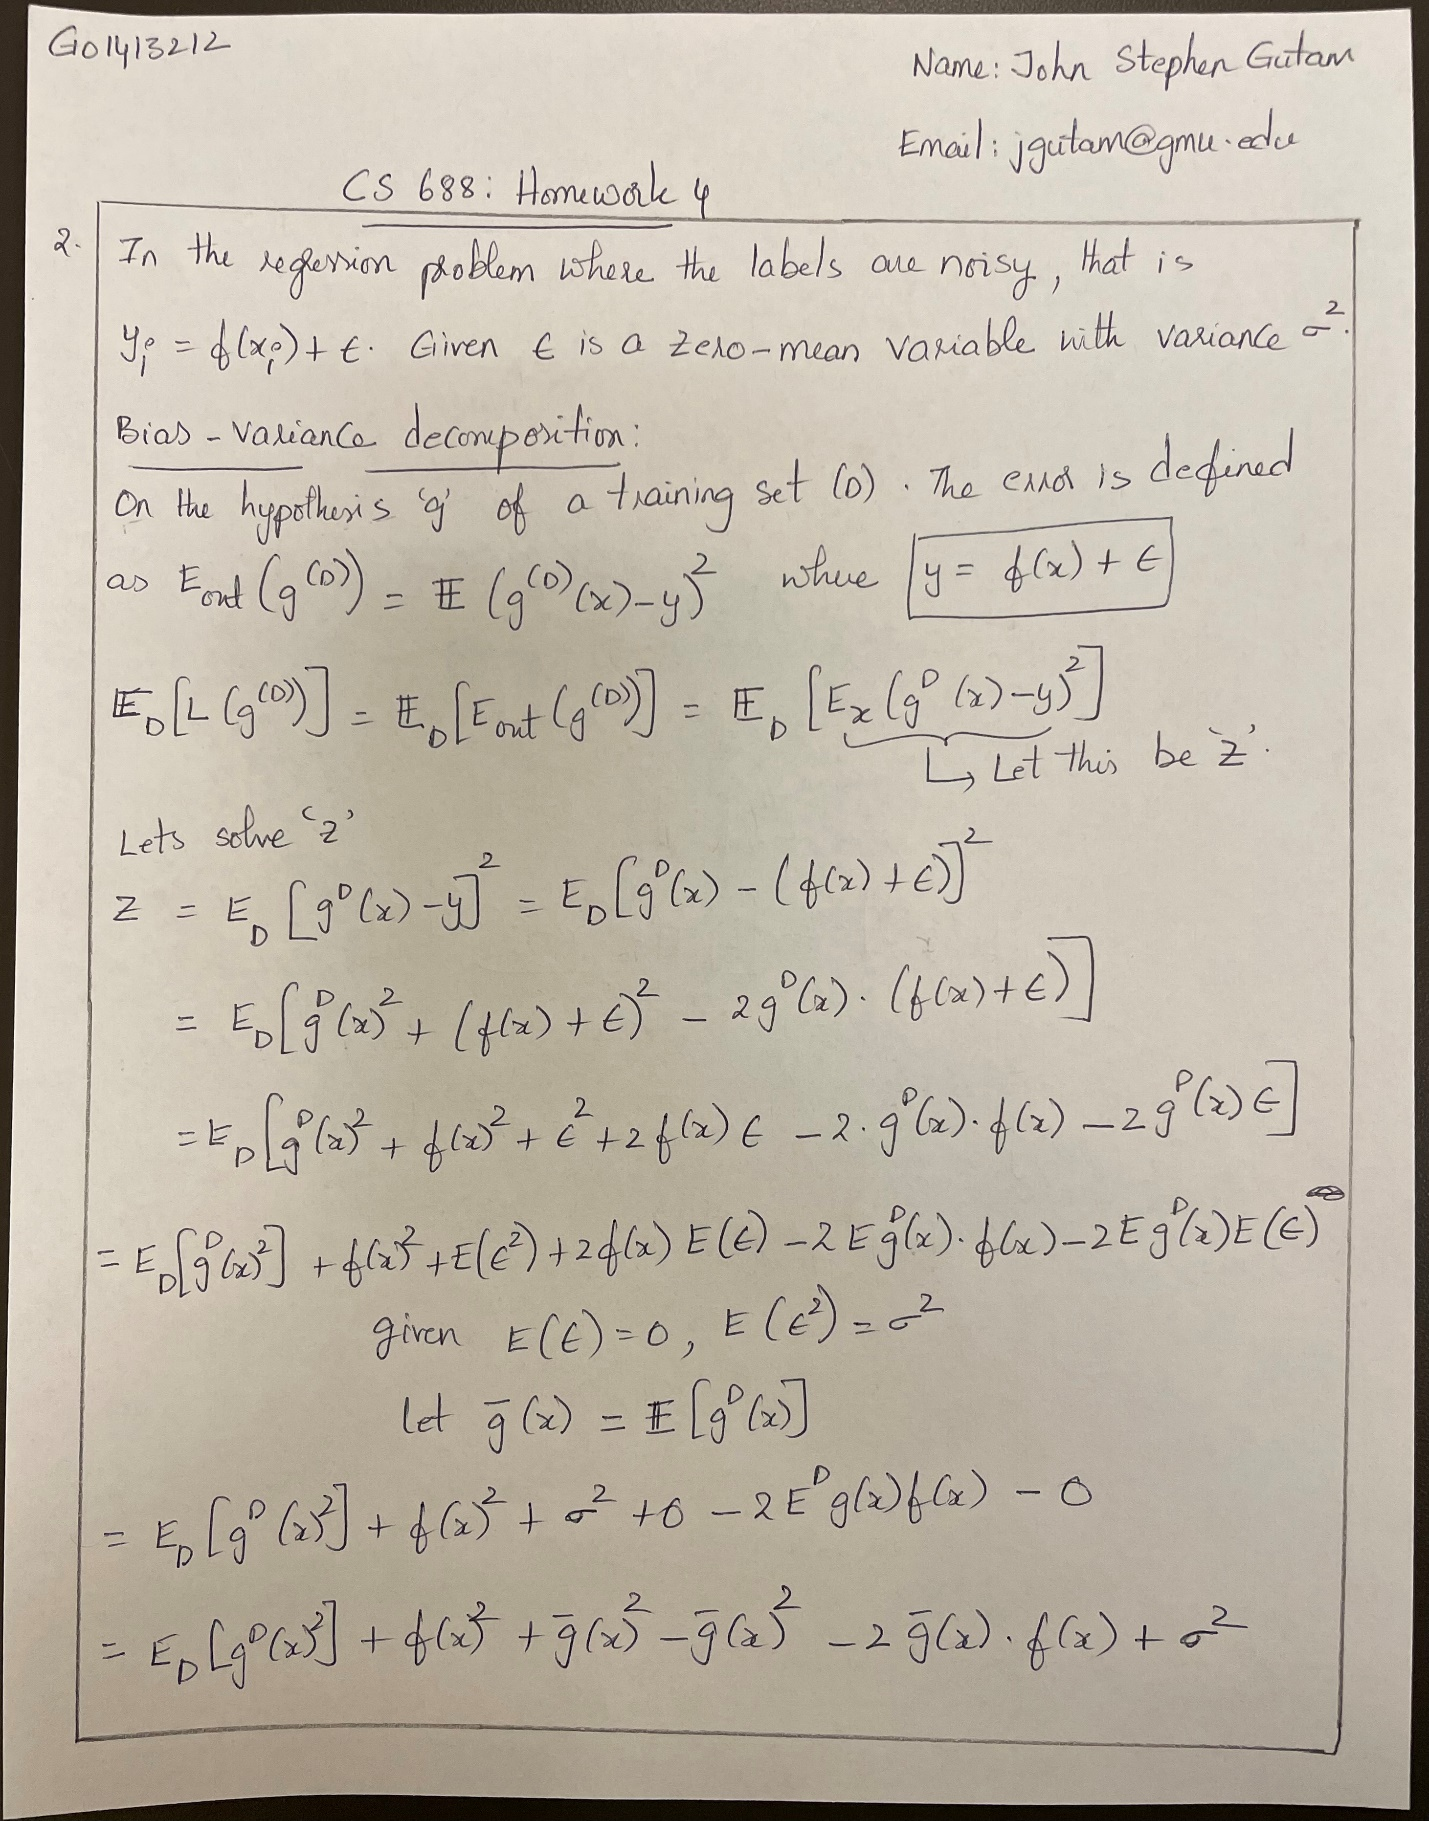 G01413212
Name: John Stephen Gutam
Email: jgutam@gmu.edu
CS 688: Homework 4
2. In the regression problem where the labels are noisy, that is
yᵢ = f(xᵢ) + ϵ. Given ϵ is a zero-mean variable with variance σ².
Bias-variance decomposition:
On the hypothesis 'g' of a training set (D). The error is defined
as E_out (g^(D)) = 𝔼 (g^(D)(x)-y)² where y = f(x) + ϵ
𝔼_D [L (g^(D))] = 𝔼_D [E_out (g^(D))] = 𝔼_D [E_x (g^D (x)-y)²]
↳ Let this be 'z'.
Lets solve 'z'
z = E_D [g^D(x)-y]² = E_D [g^D(x) - (f(x) + ϵ)]²
= E_D [g^D(x)² + (f(x) + ϵ)² - 2g^D(x). (f(x)+ϵ)]
= E_D [g^D(x)² + f(x)² + ϵ² + 2f(x)ϵ - 2.g^D(x).f(x) - 2g^D(x)ϵ]
= E_D [g^D(x)²] + f(x)² + E(ϵ²) + 2f(x) E(ϵ) - 2E g^D(x).f(x) - 2E g^D(x)E(ϵ)
given E(ϵ)=0, E(ϵ²)=σ²
let ḡ(x) = 𝔼[g^D(x)]
= E_D [g^D(x)²] + f(x)² + σ² + 0 - 2E^D g(x)f(x) - 0
= E_D [g^D(x)²] + f(x)² + ḡ(x)² - ḡ(x)² - 2ḡ(x).f(x) + σ²